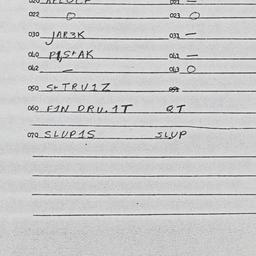 022 O 023 O
030 JAR3K 031 —
040 P1S+AK 041 —
042 — 043 O
050 S+TRU1Z
060 F1N DRU.1T QT
070 SLUP1S SLUP